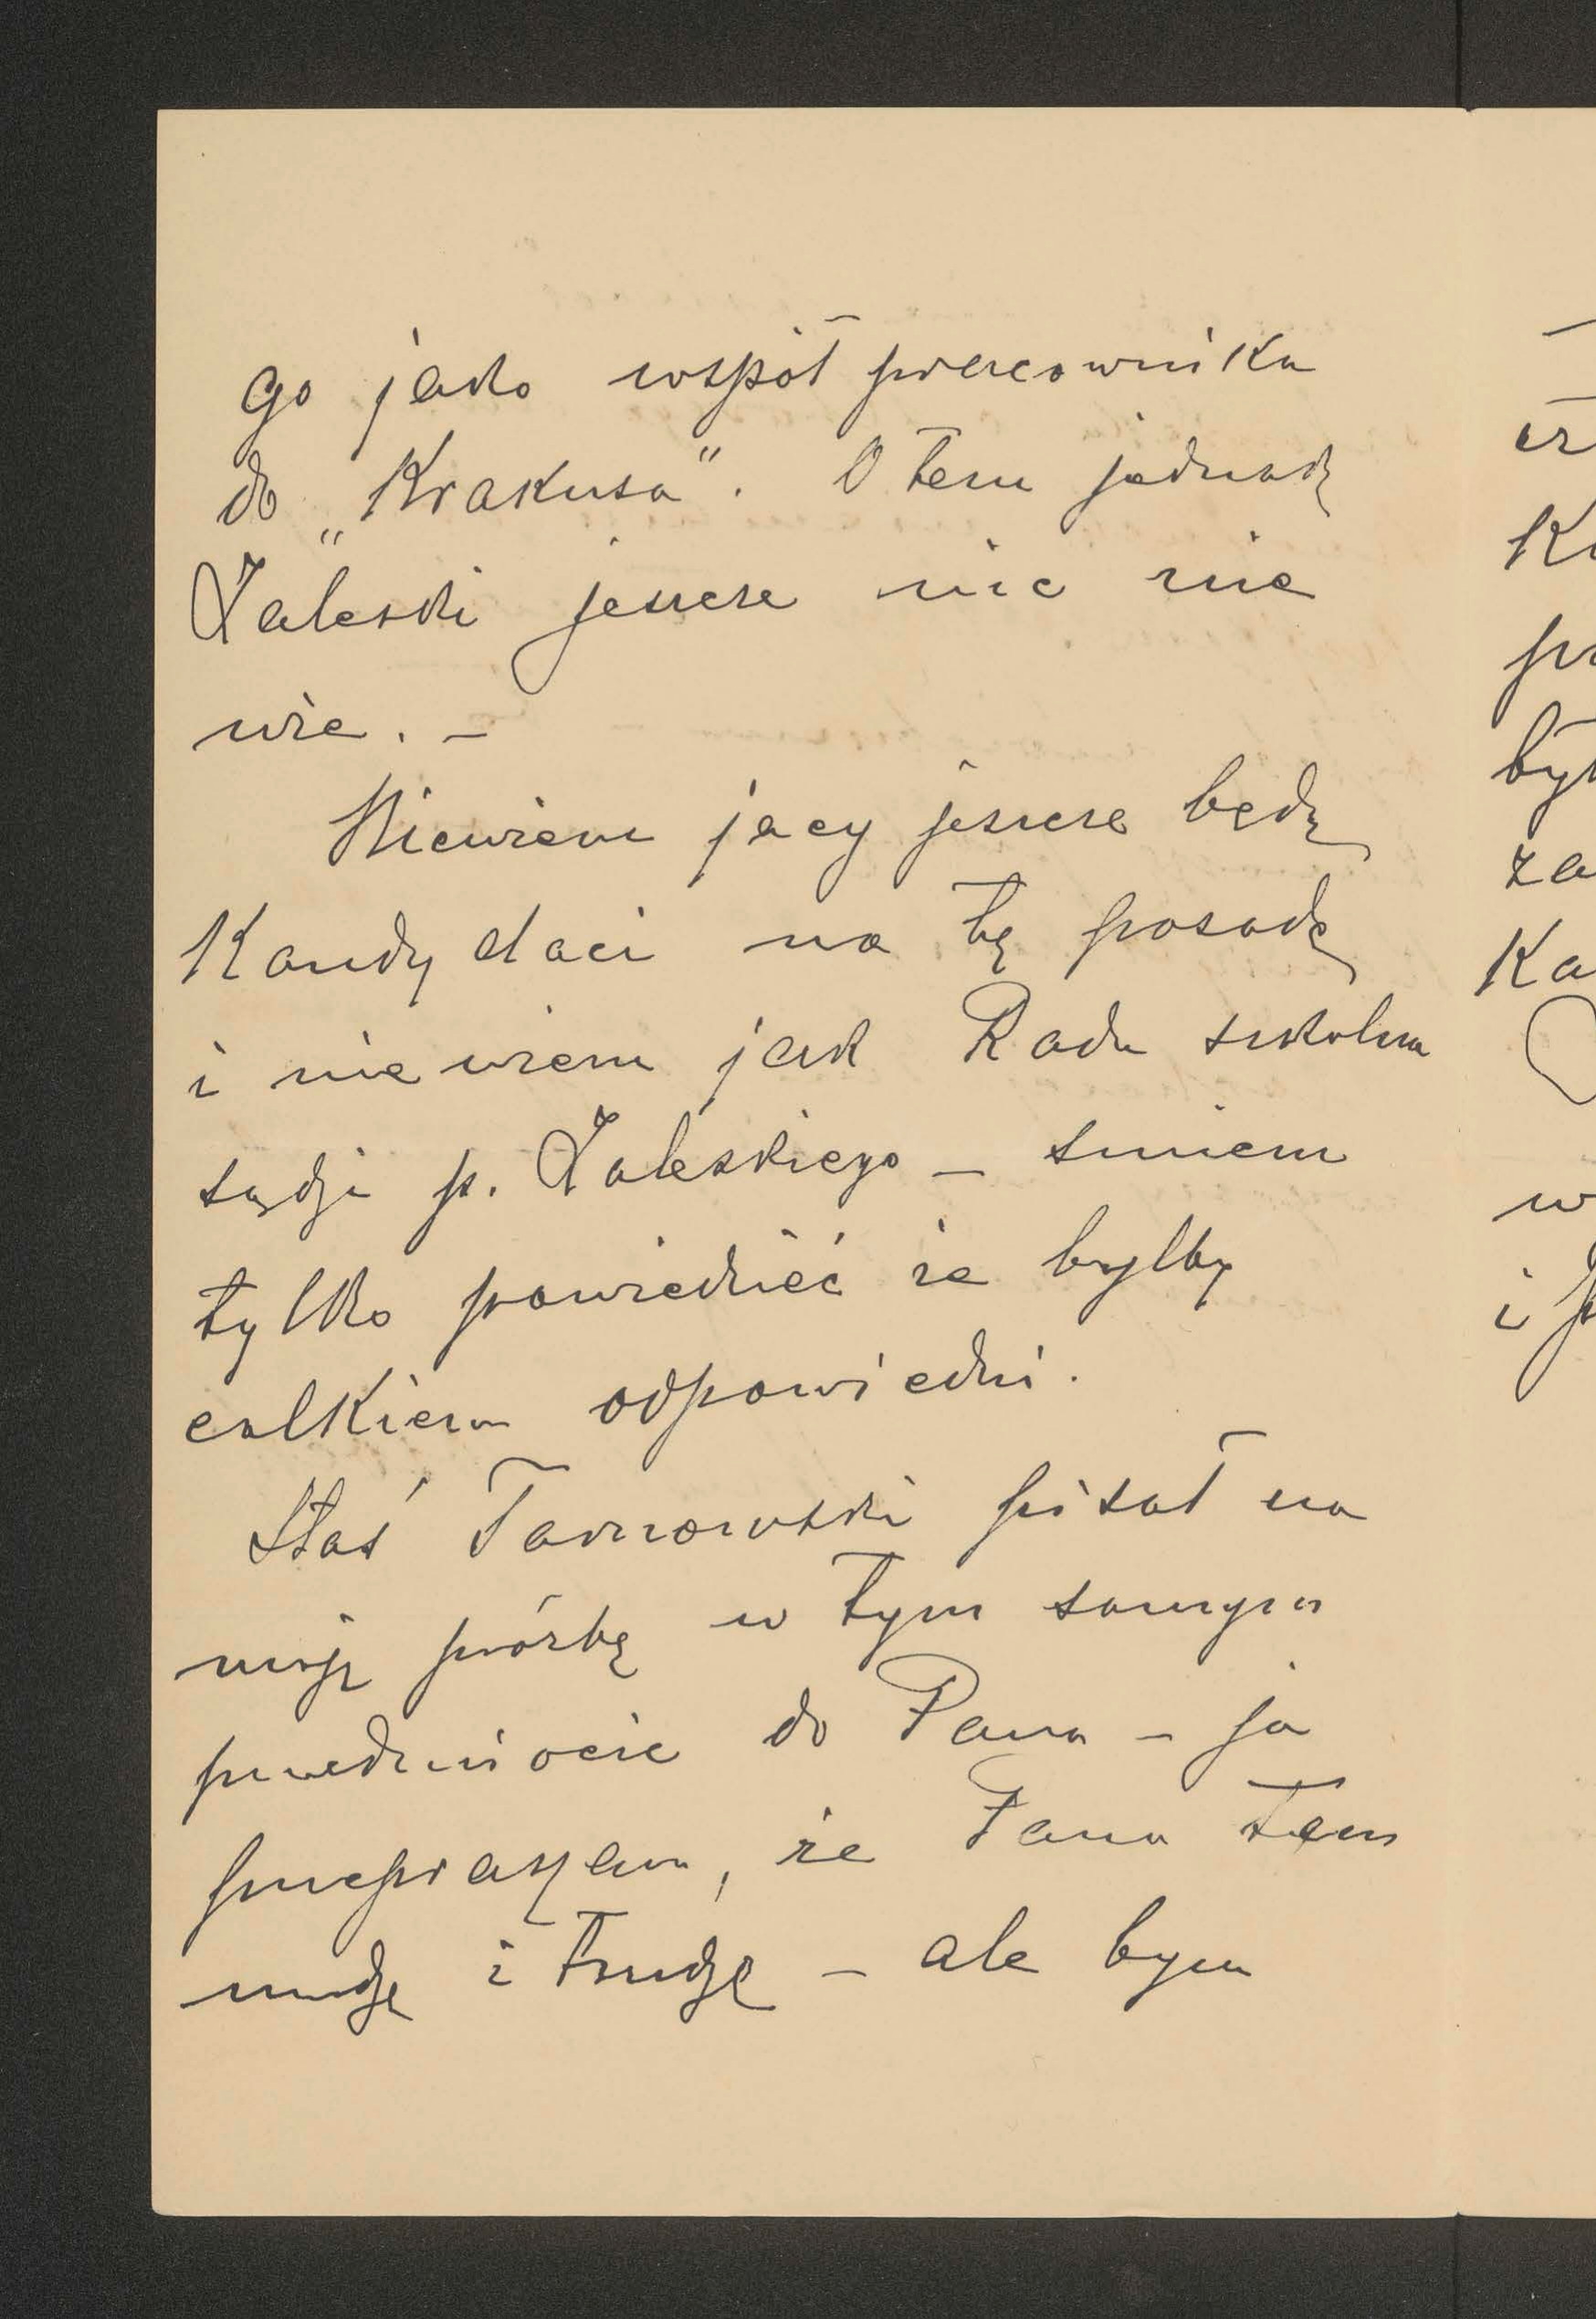 go jako współpracownika
do „Krakusa". O tem jednak
Zaleski jeszcze nic nie
wie. –
Niewiem jacy jeszcze będą
Kandydaci na tę posadę
i nie wiem jak Rada szkolna
sądzi p. Zaleskiego – smiem
tylko powiedzieć że byłby
całkiem odpowiedni.
Staś Tarnowski pisał na
moję prózbę w tym samym
przedmiocie do Pana – ja
przepraszam, że Pana tem
nudzę i trudzę – ale bym
Ku
pr
był
za
Ka
w
i p